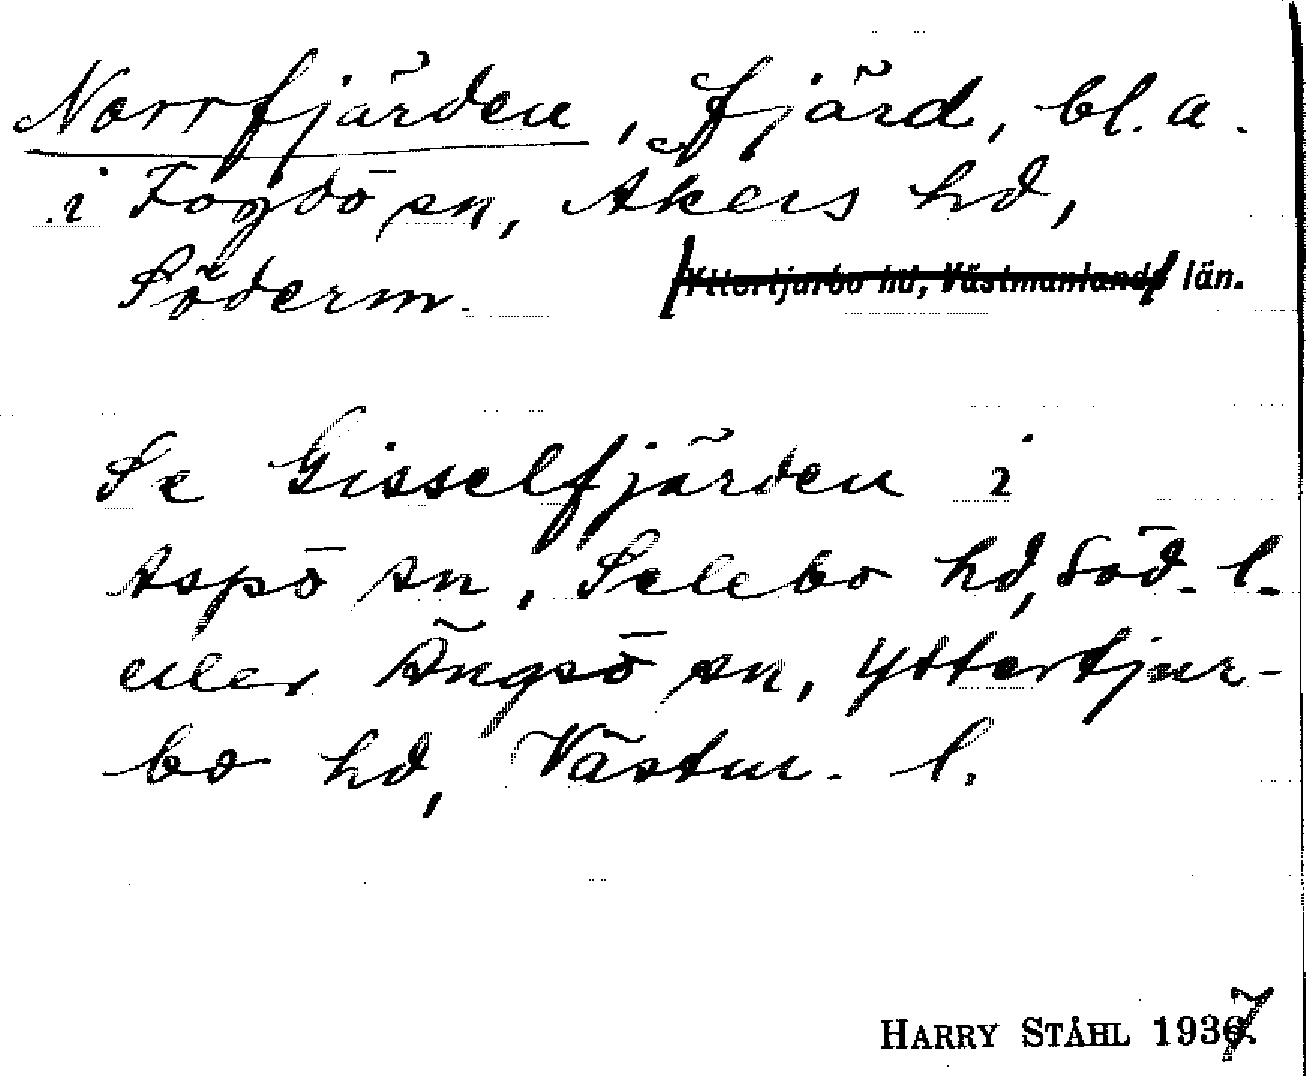 Norrfjärden, fjärd, bl. a.
i Fogdö sn, Åkers hd,
Söderm. Yttertjurbo hd, Västmanlands län.
Se Gisselfjärden i
Aspö sn, Selebo hd, Söd. l.
eller Ängsö sn, Yttertjur-
bo hd, Västm. l.
HARRY STÅHL 1937.